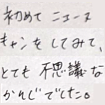 初めて ニュース
キャンをしてみて、
とても 不思議な
かんじでした。